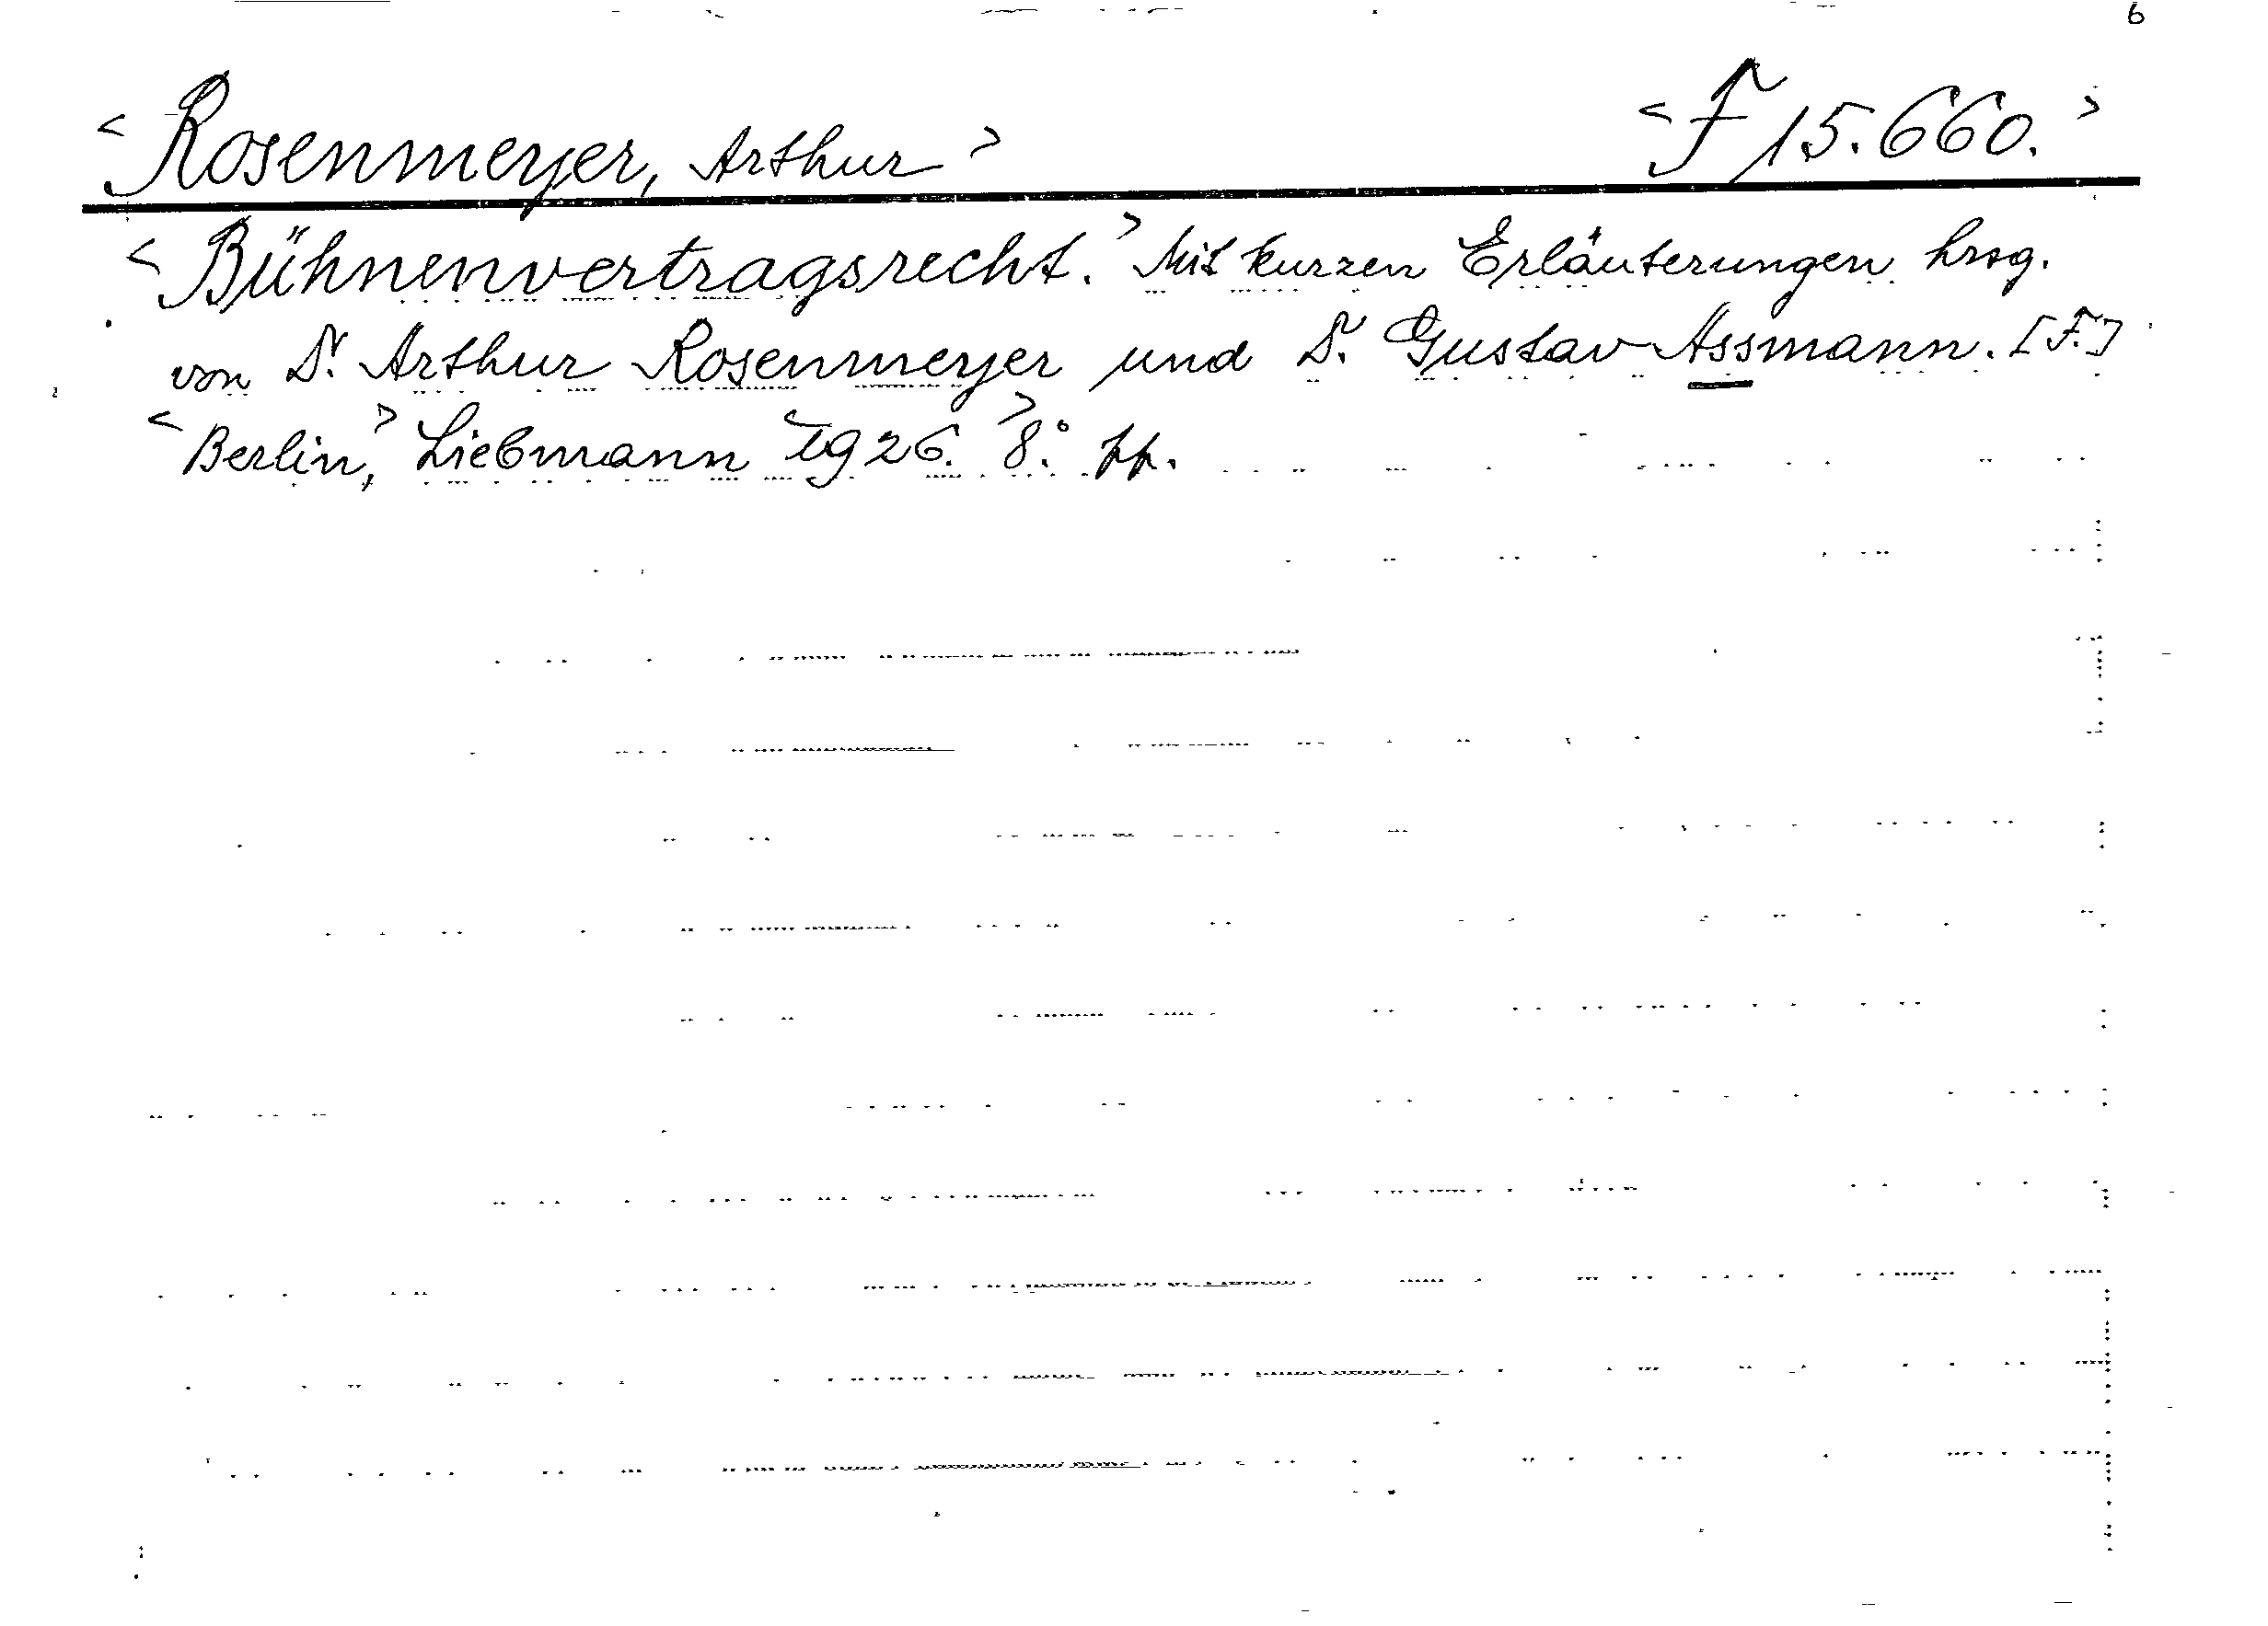 6
<Rosenmeyer, Arthur> <F 15.660.>
<Bühnenvertragsrecht.> Mit kurzen Erläuterungen hrsg.
von Dr. Arthur Rosenmeyer und Dr. Gustav Assmann. [F.]
<Berlin,> Liebmann <1926.> 8.°